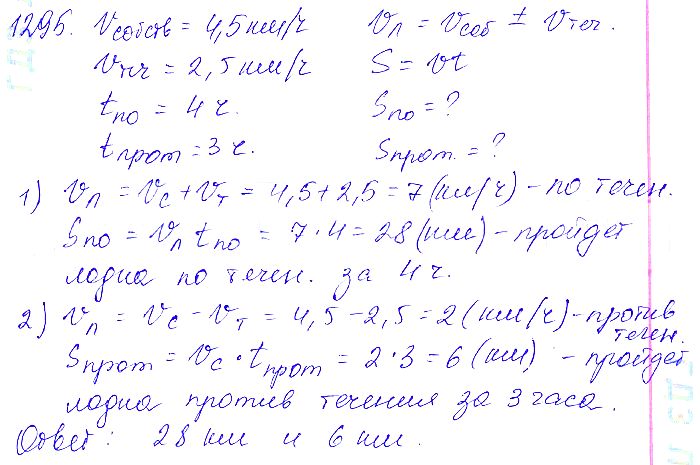 1295. Vсобств = 4,5 км/ч Vл = Vсоб ± Vтеч.
Vтеч = 2,5 км/ч S = vt
tпо = 4 ч. Sпо = ?
tпрот = 3 ч. Sпрот. = ?
1) Vл = Vс + Vт = 4,5 + 2,5 = 7 (км/ч) - по течен.
Sпо = Vл tпо = 7 · 4 = 28 (км) - пройдет
лодка по течен. за 4 ч.
2) Vл = Vс - Vт = 4,5 - 2,5 = 2 (км/ч) - против
течен.
Sпрот = Vс · tпрот = 2 · 3 = 6 (км) - пройдет
лодка против течения за 3 часа.
Ответ: 28 км и 6 км.